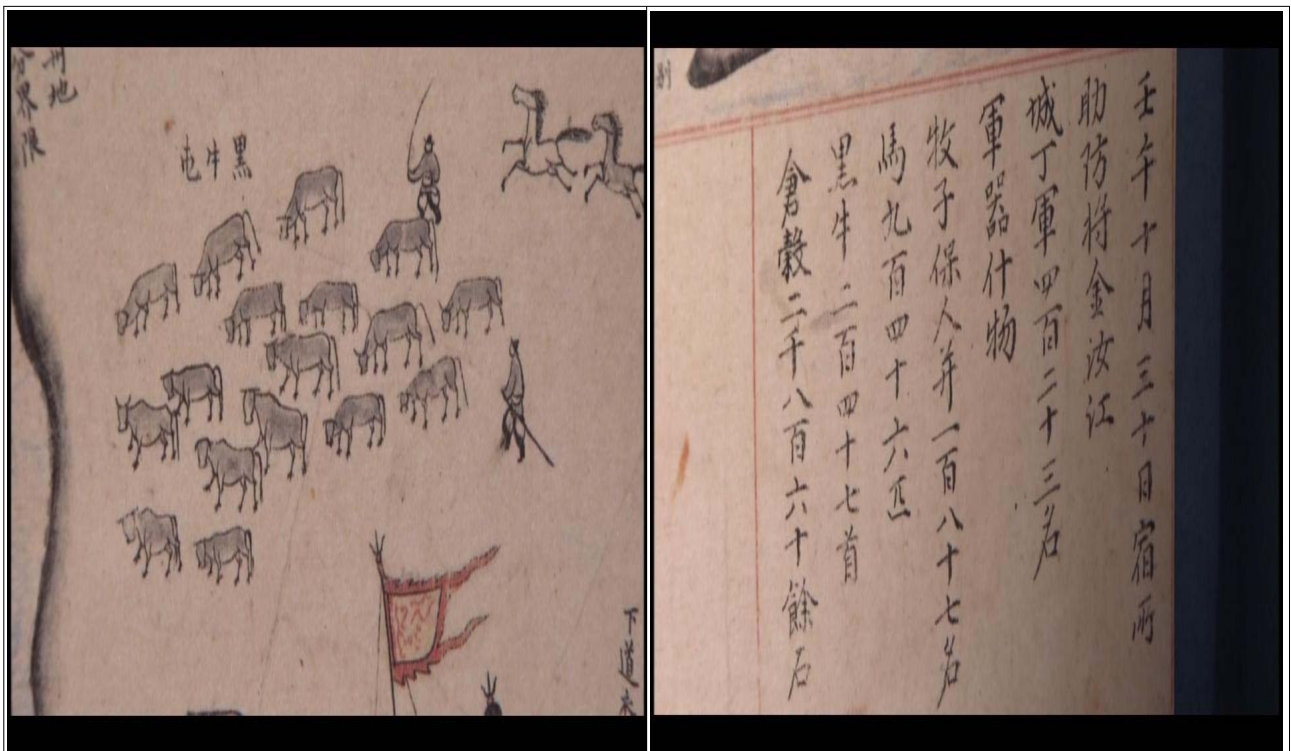 州地
分界限
黑牛屯
下道
壬午十月三十日宿所
助防將金汝江
城丁軍四百二十三名
軍器什物
牧子保人并一百八十七名
馬九百四十六匹
黑牛二百四十七首
倉穀二千八百六十餘石